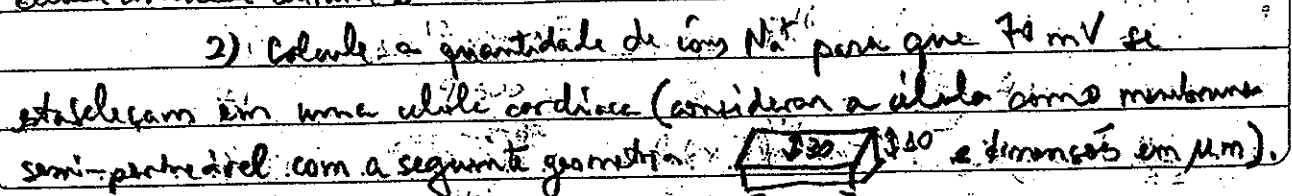 2) Calcule a quantidade de íons Na⁺ para que 70 mV se
estabeleçam em uma célula cardíaca (considerar a célula como membrana
semi-permeável com a seguinte geometria 30 10 e dimensões em µm).